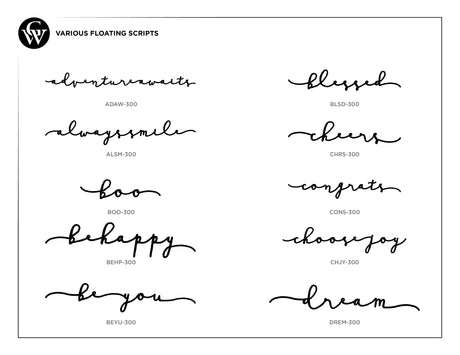 CW
VARIOUS FLOATING SCRIPTS
adventureawaits
ADAW-300
alwayssmile
ALSM-300
boo
BOO-300
behappy
BEHP-300
be you
BEYU-300
blessed
BLSD-300
cheers
CHRS-300
congrats
CONS-300
choosejoy
CHJY-300
dream
DREM-300